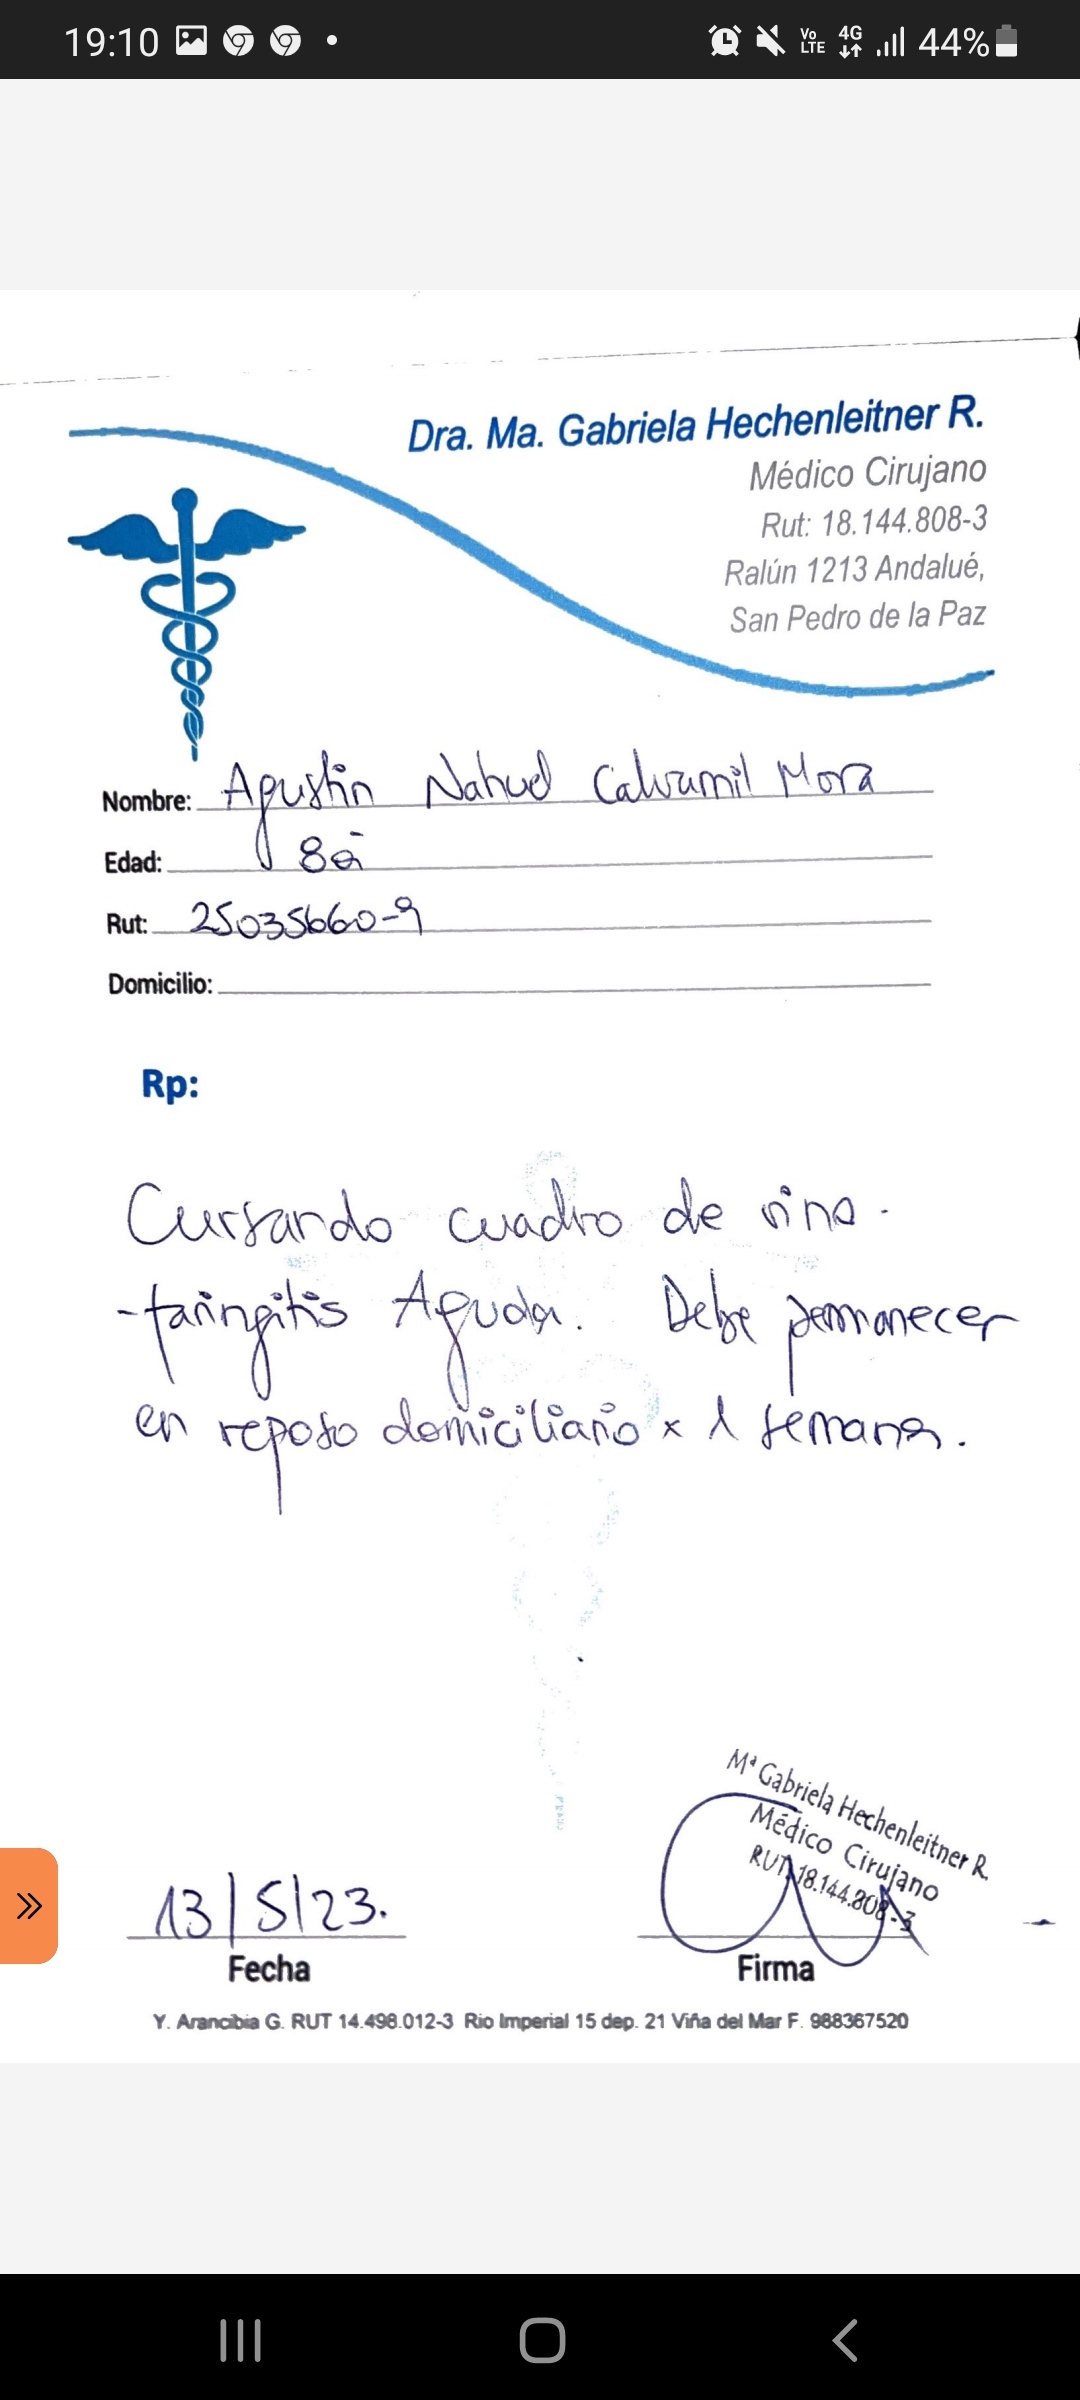 19:10
Vo LTE 4G 44%
Dra. Ma. Gabriela Hechenleitner R.
Médico Cirujano
Rut: 18.144.808-3
Ralún 1213 Andalué,
San Pedro de la Paz
Nombre: Agustin Nahuel Calvumil Mora
Edad: 8a
Rut: 25035660-9
Domicilio:
Rp:
Cursando cuadro de rino-
-faringitis Aguda. Debe permanecer
en reposo domiciliario x 1 semana.
Mª Gabriela Hechenleitner R.
Médico Cirujano
RUT: 18.144.808-3
13/5/23.
Fecha
Firma
Y. Arancibia G. RUT 14.498.012-3 Rio Imperial 15 dep. 21 Viña del Mar F. 988367520